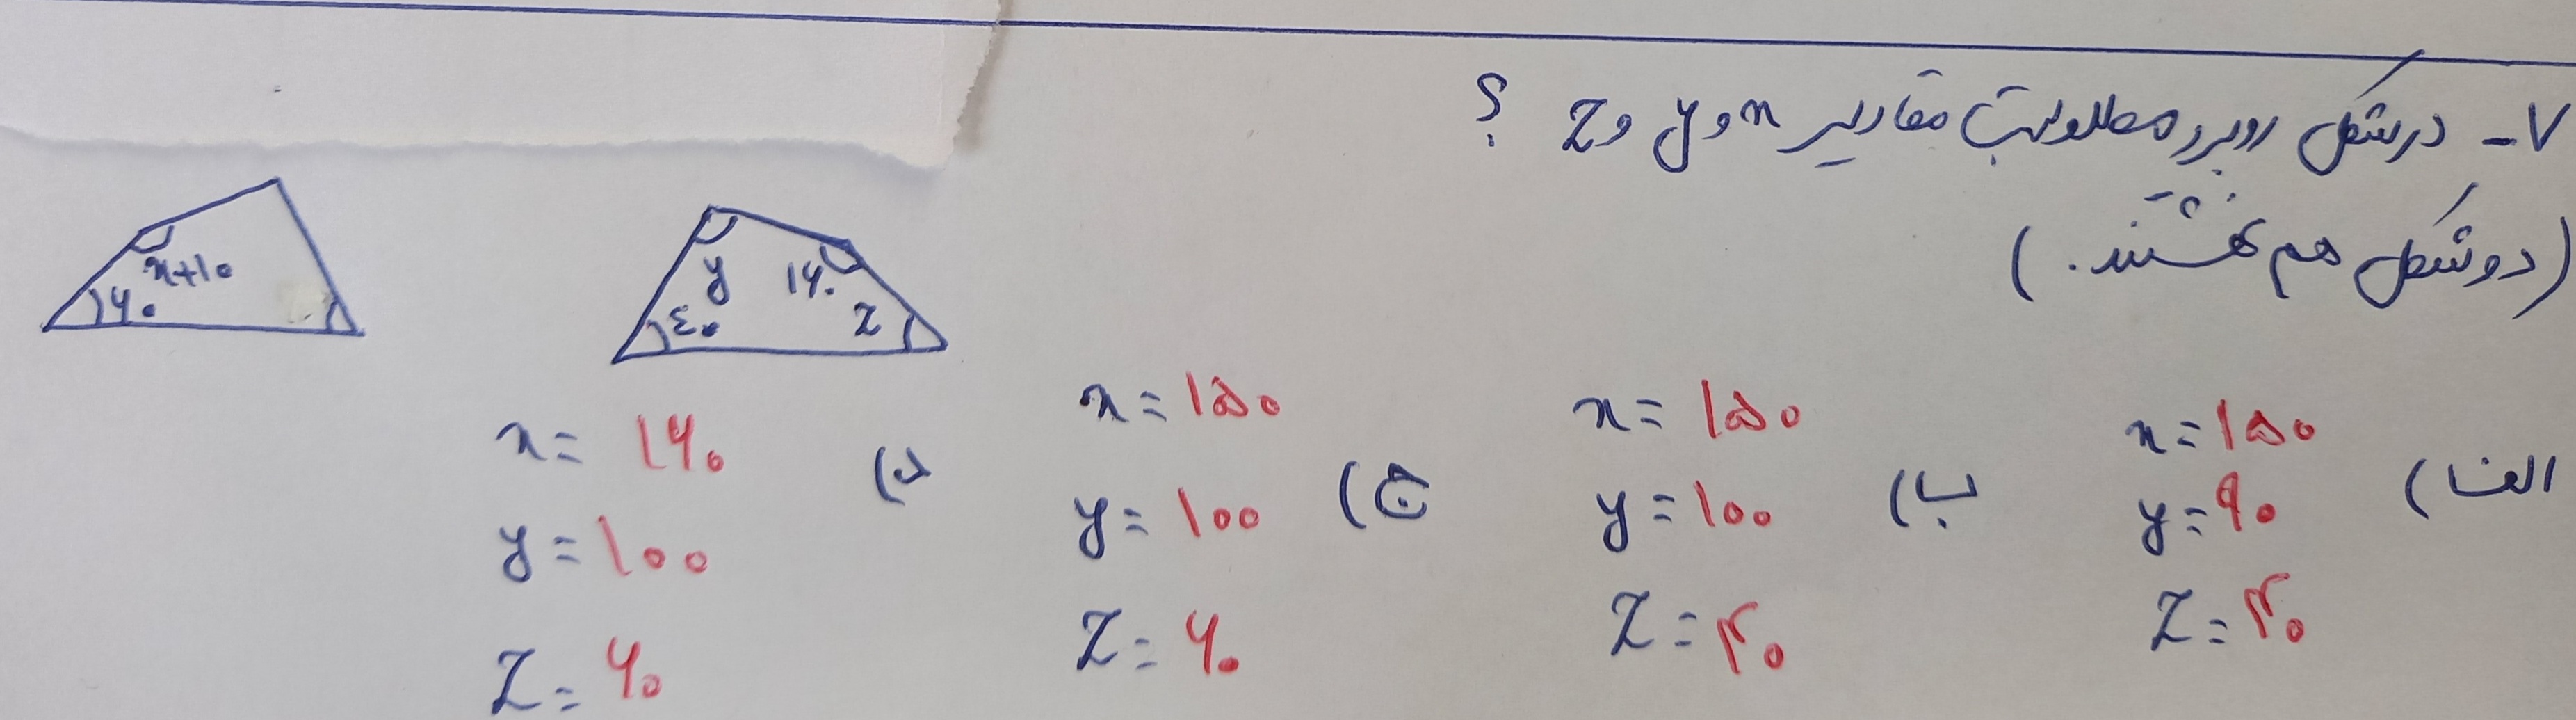 ۷- در شکل روبرو مطلوبست مقادیر x و y و z ؟
(دو شکل هم نهشتند.)
x+۱۰
۶۰
y
۱۶۰
۴۰
z
الف)
x = ۱۵۰
y = ۹۰
z = ۴۰
ب)
x = ۱۵۰
y = ۱۰۰
z = ۴۰
ج)
x = ۱۵۰
y = ۱۰۰
z = ۶۰
د)
x = ۱۶۰
y = ۱۰۰
z = ۶۰